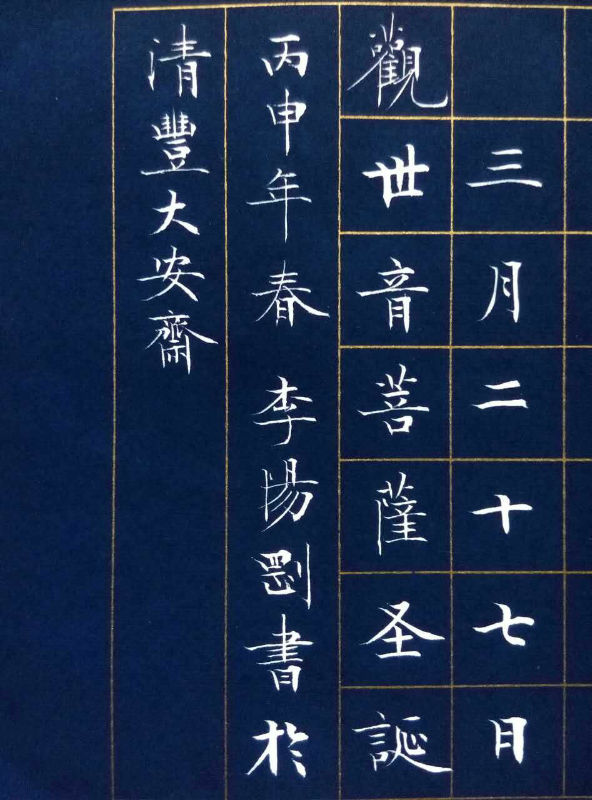 三月二十七日
觀世音菩薩圣誕
丙申年春 李陽剛書於
清豐大安齋